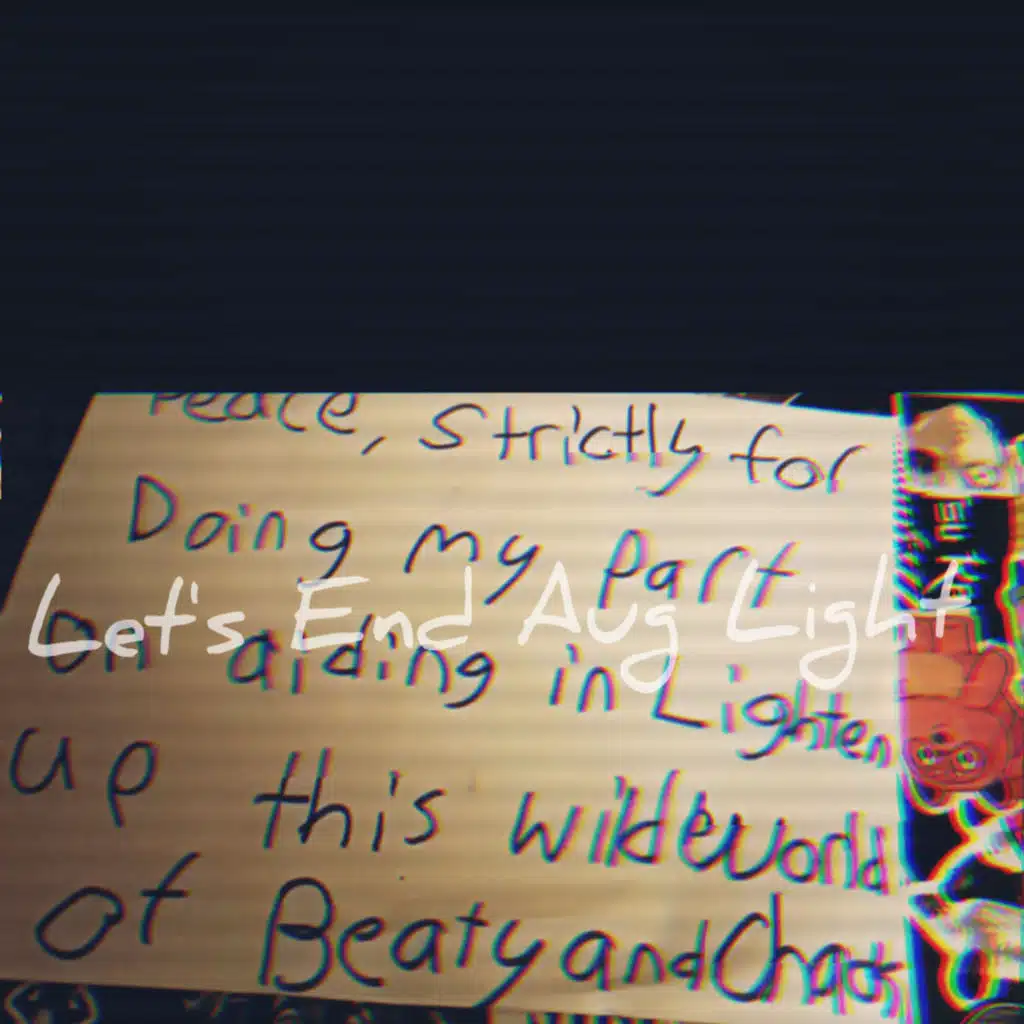 Peace, Strictly for
Doing my part
Let's End Aug Light
on aiding in Lighten
up this wildeworld
of Beaty and Chaos